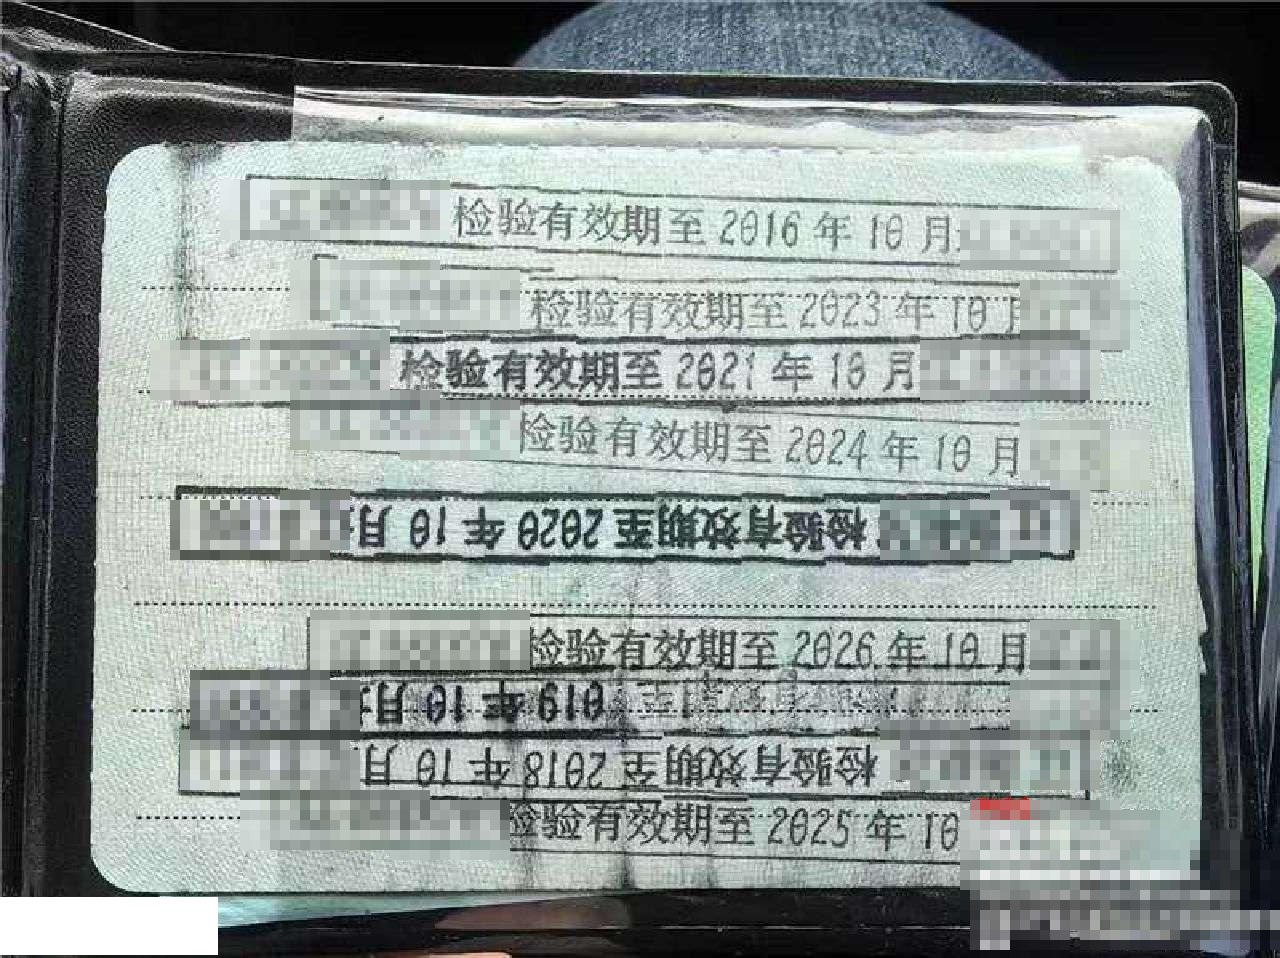 检验有效期至2016年10月
检验有效期至2023年10月
检验有效期至2021年10月
检验有效期至2024年10月
检验有效期至2020年10月
检验有效期至2026年10月
019年10月
检验有效期至2018年10月
检验有效期至2025年10